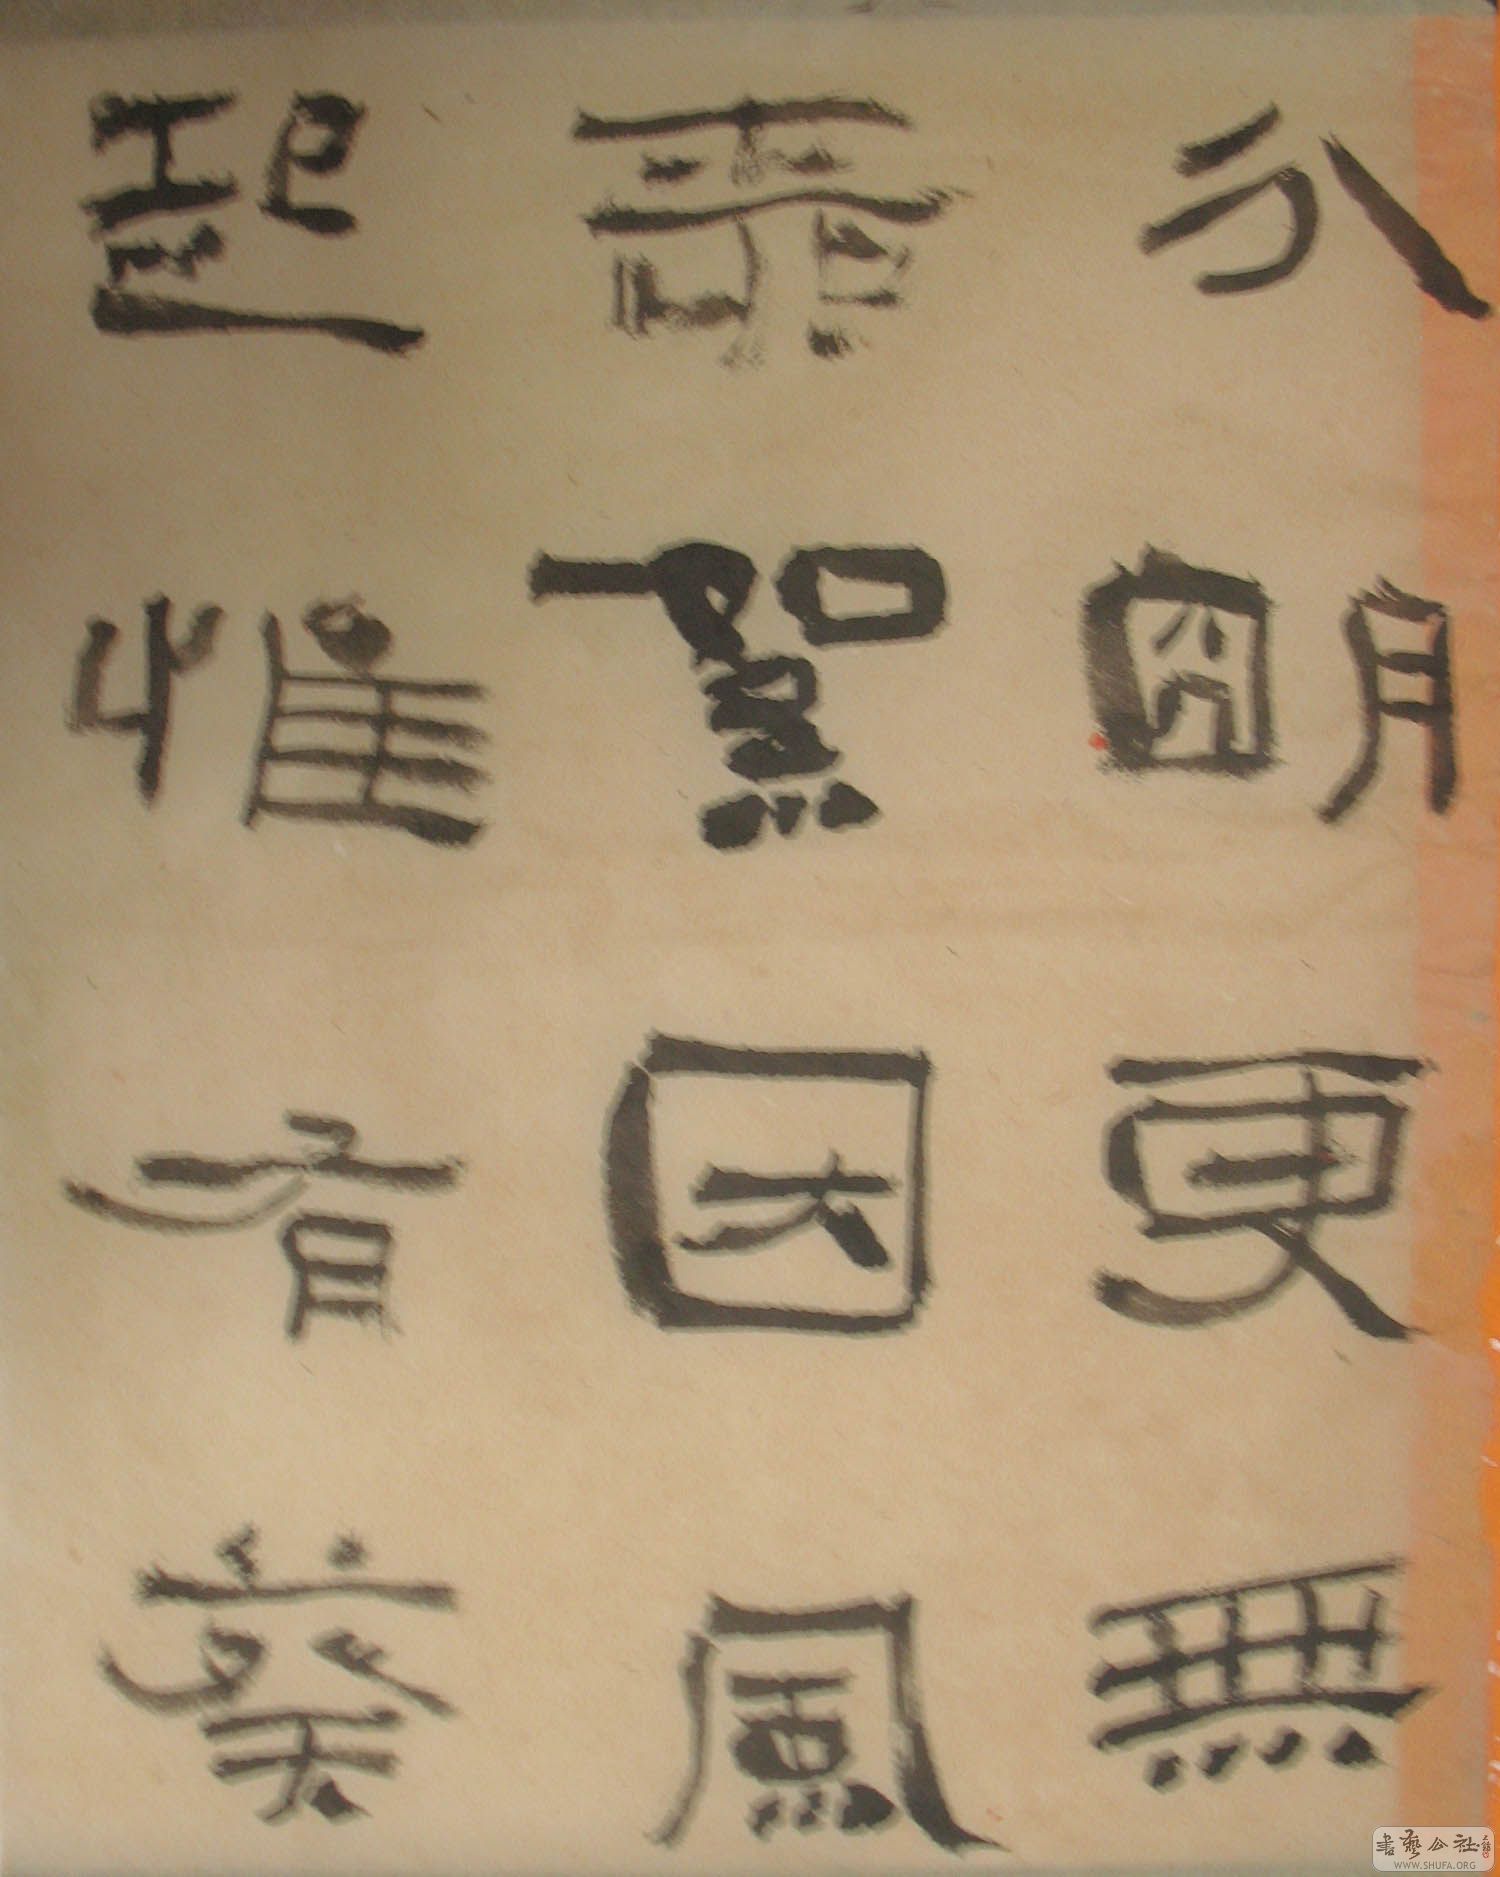 分明更無
柳絮因風
起惟有葵
書藝公社
WWW.SHUFA.ORG